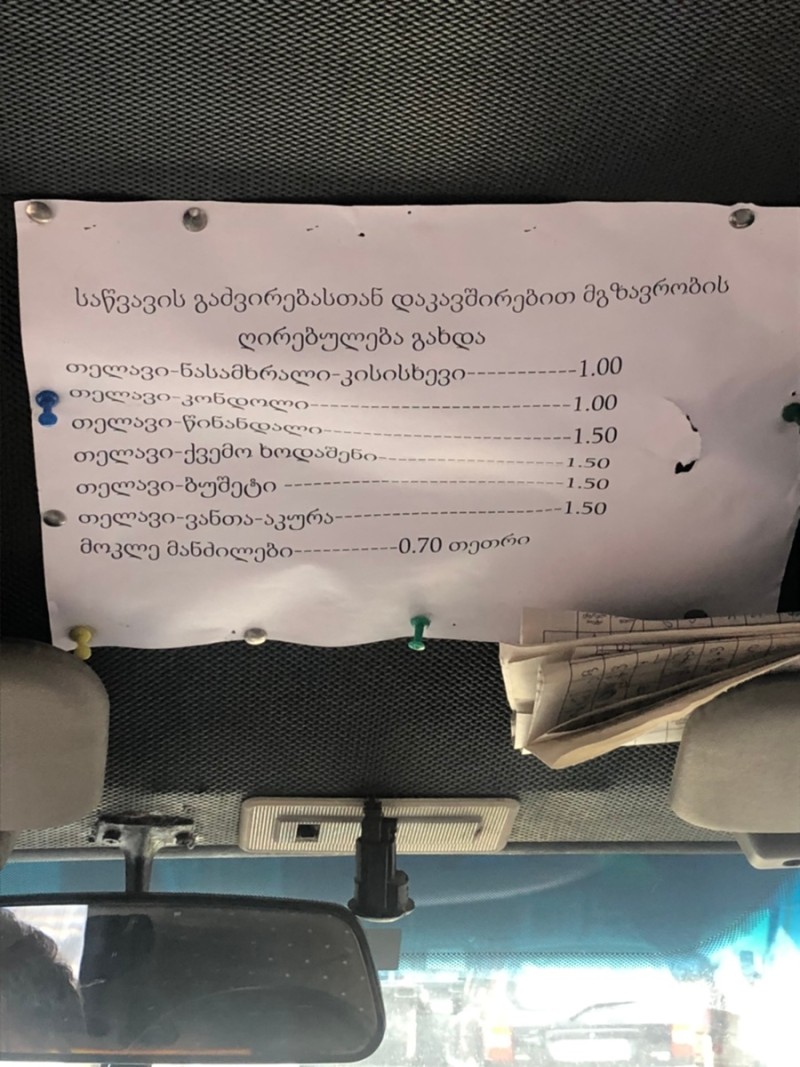 საწვავის გაძვირებასთან დაკავშირებით მგზავრობის
ღირებულება გახდა
თელავი-ნასამხრალი-კისისხევი-----------1.00
თელავი-კონდოლი--------------------------1.00
თელავი-წინანდალი-------------------------1.50
თელავი-ქვემო ხოდაშენი-------------------1.50
თელავი-ბუშეტი ----------------------------1.50
თელავი-ვანთა-აკურა-----------------------1.50
მოკლე მანძილები----------0.70 თეთრი